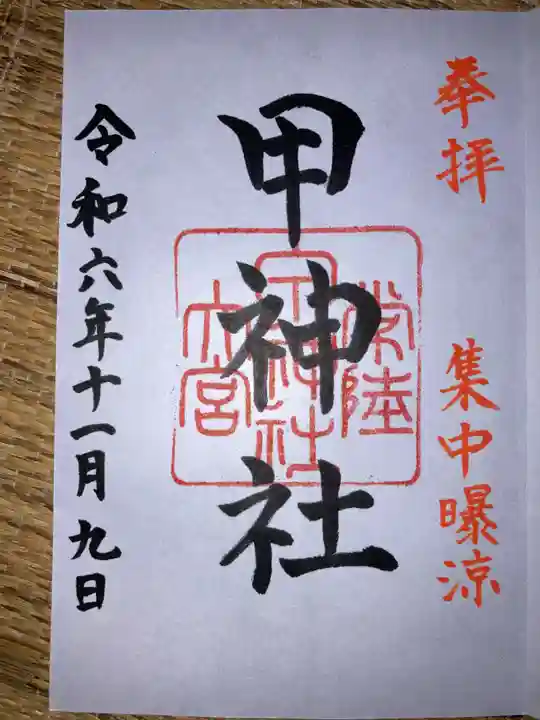 奉拝　集中曝涼
甲神社
常陸
甲神社
六宮
令和六年十一月九日